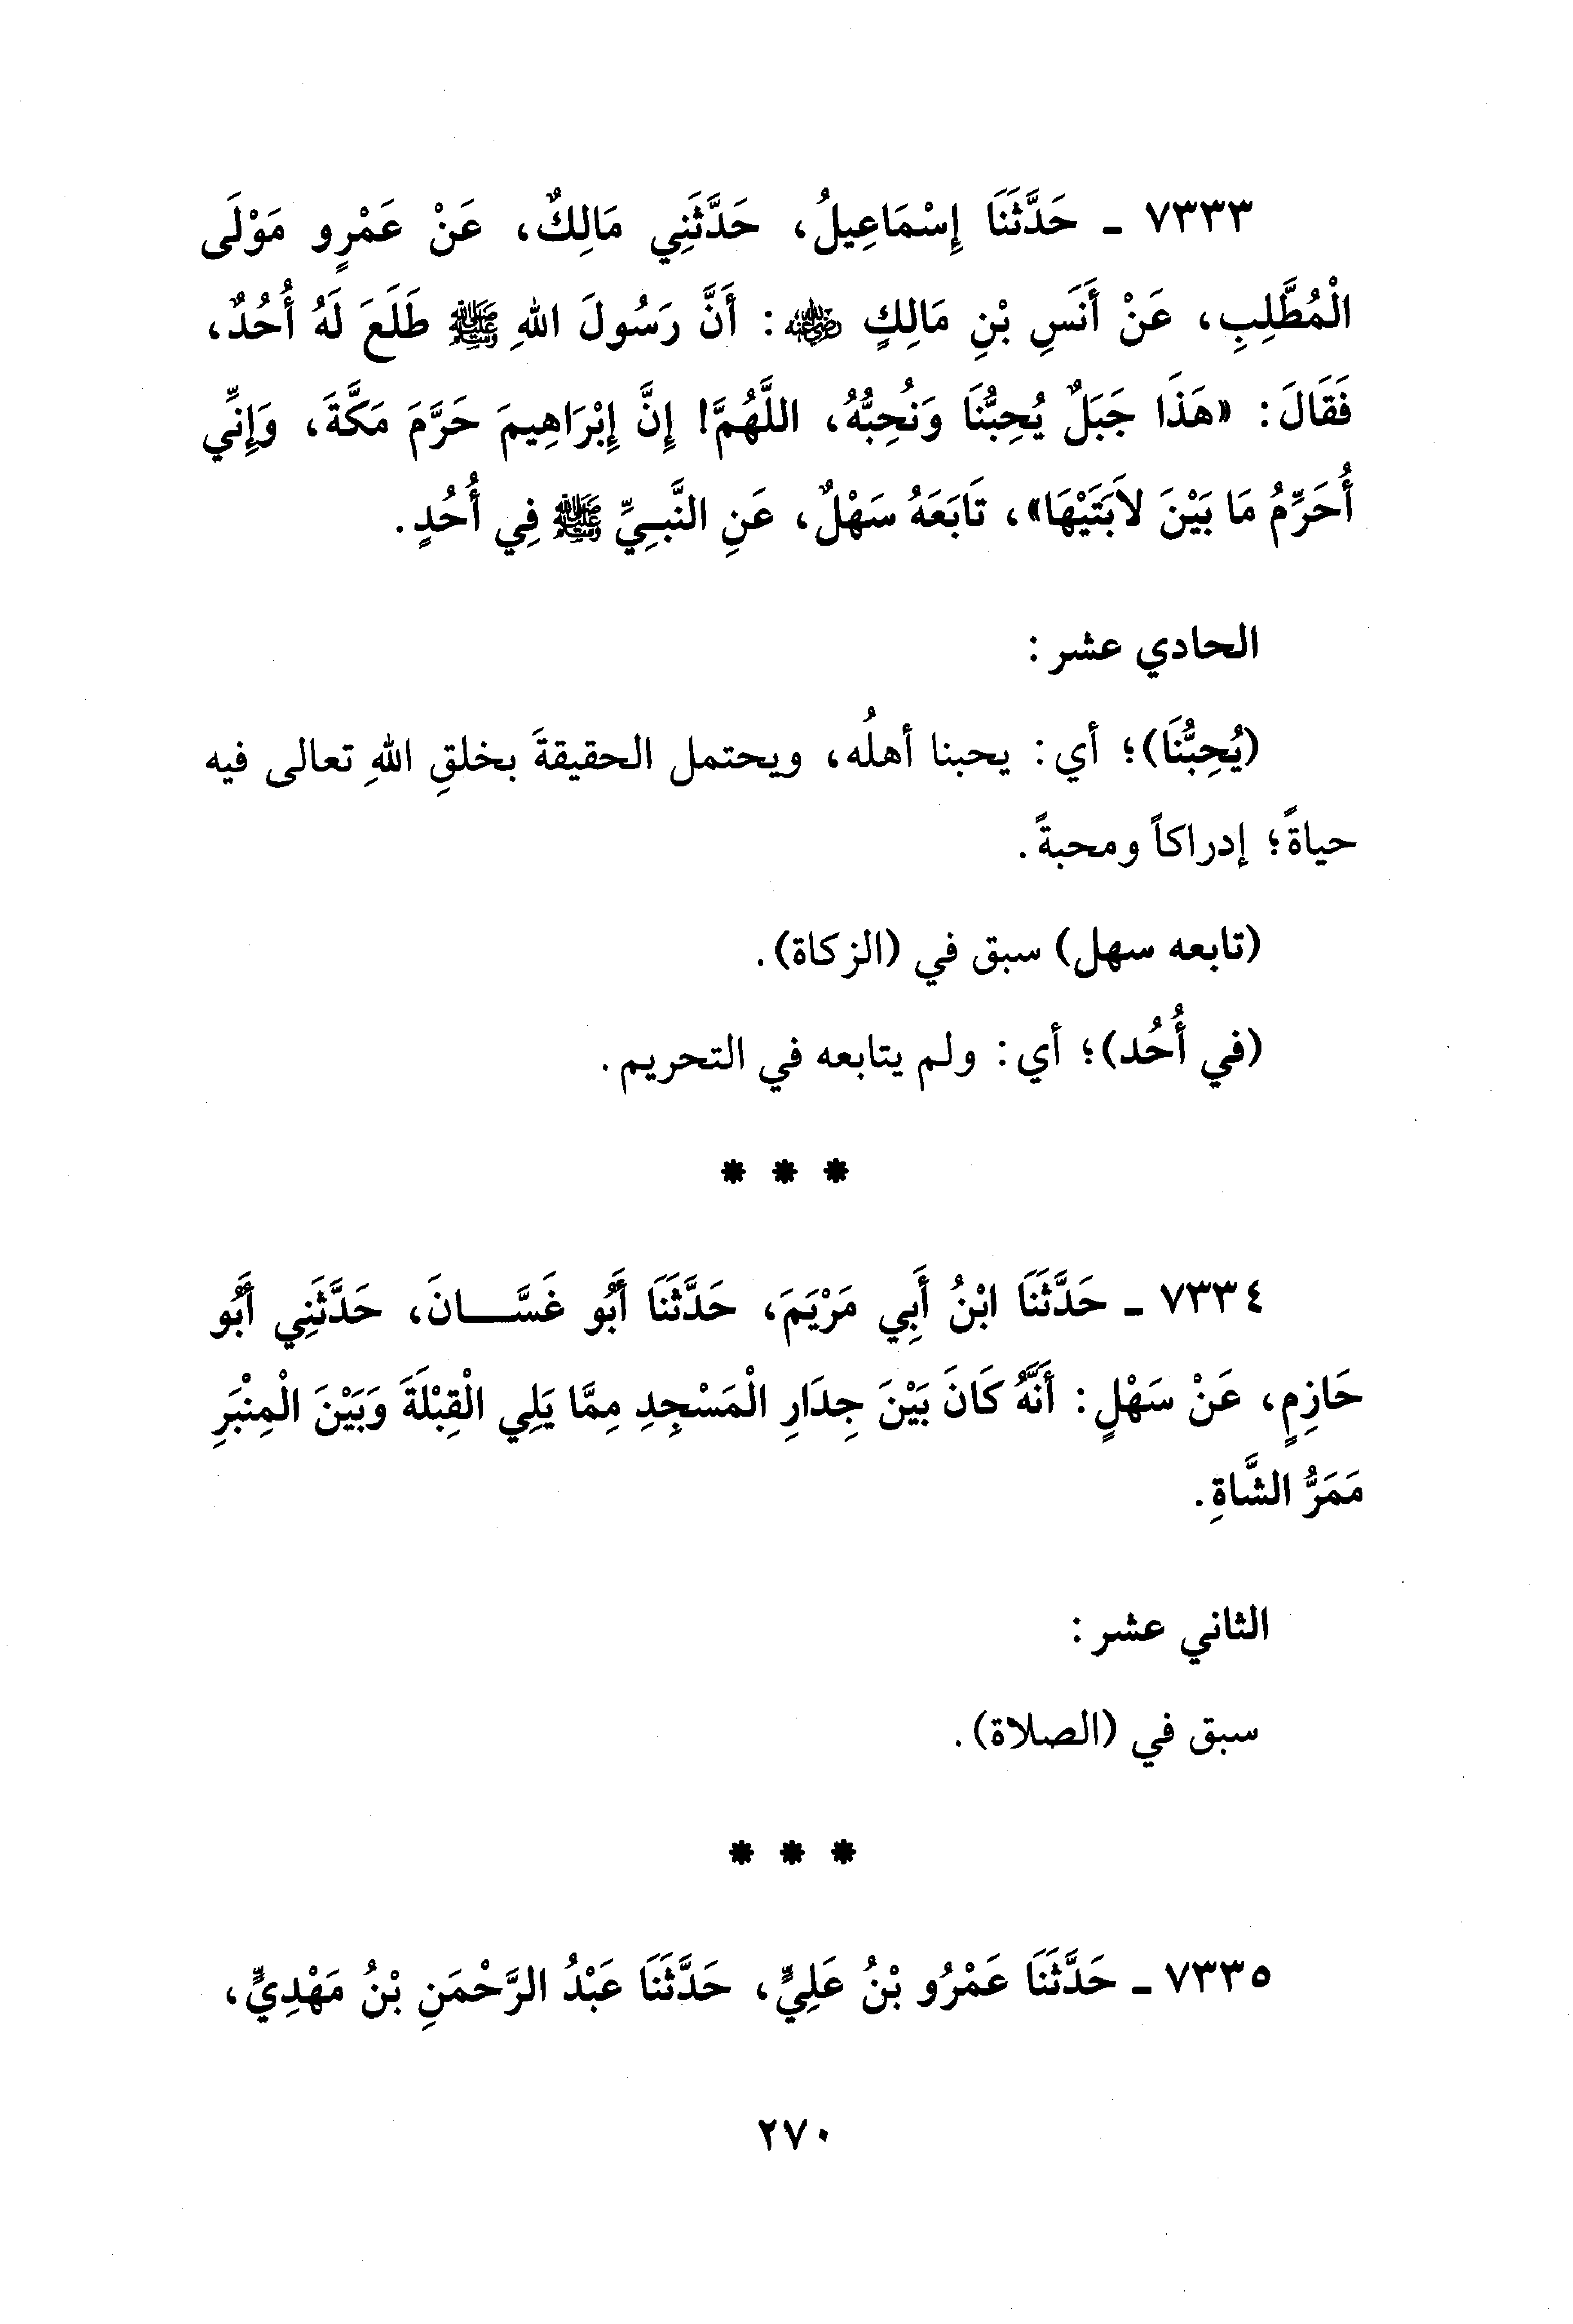 ٧٣٣٣ ـ حَدَّثَنَا إِسْمَاعِيلُ، حَدَّثَنِي مَالِكٌ، عَنْ عَمْرٍو مَوْلَى
الْمُطَّلِبِ، عَنْ أَنَسِ بْنِ مَالِكٍ رضي الله عنه: أَنَّ رَسُولَ اللهِ ﷺ طَلَعَ لَهُ أُحُدٌ،
فَقَالَ: «هَذَا جَبَلٌ يُحِبُّنَا وَنُحِبُّهُ، اللَّهُمَّ! إِنَّ إِبْرَاهِيمَ حَرَّمَ مَكَّةَ، وَإِنِّي
أُحَرِّمُ مَا بَيْنَ لاَبَتَيْهَا»، تَابَعَهُ سَهْلٌ، عَنِ النَّبِيِّ ﷺ فِي أُحُدٍ.
الحادي عشر:
(يُحِبُّنَا)؛ أي: يحبنا أهلُه، ويحتمل الحقيقةَ بخلقِ اللهِ تعالى فيه
حياةً؛ إدراكاً ومحبةً.
(تابعه سهل) سبق في (الزكاة).
(في أُحُد)؛ أي: ولم يتابعه في التحريم.
* * *
٧٣٣٤ ـ حَدَّثَنَا ابْنُ أَبِي مَرْيَمَ، حَدَّثَنَا أَبُو غَسَّـــانَ، حَدَّثَنِي أَبُو
حَازِمٍ، عَنْ سَهْلٍ: أَنَّهُ كَانَ بَيْنَ جِدَارِ الْمَسْجِدِ مِمَّا يَلِي الْقِبْلَةَ وَبَيْنَ الْمِنْبَرِ
مَمَرُّ الشَّاةِ.
الثاني عشر:
سبق في (الصلاة).
* * *
٧٣٣٥ ـ حَدَّثَنَا عَمْرُو بْنُ عَلِيٍّ، حَدَّثَنَا عَبْدُ الرَّحْمَنِ بْنُ مَهْدِيٍّ،
٢٧٠